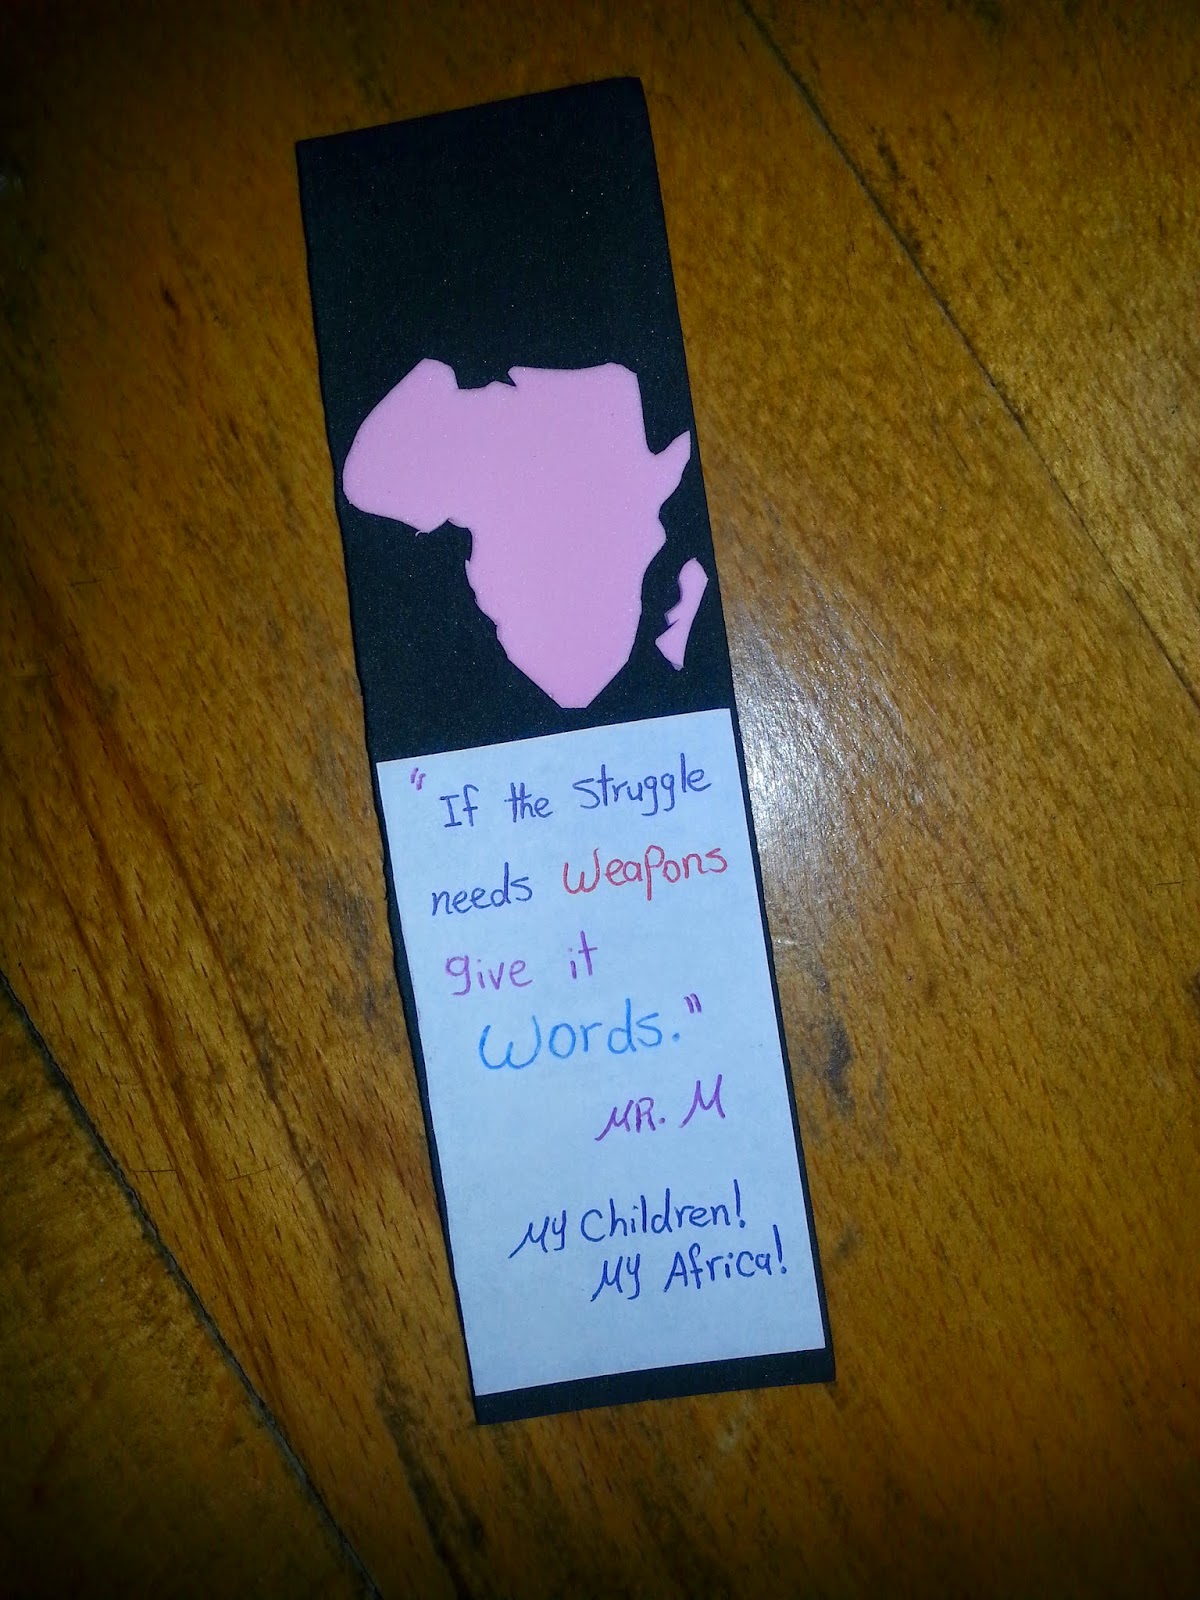 "If the Struggle
needs Weapons
give it
Words."
MR. M
My Children!
My Africa!